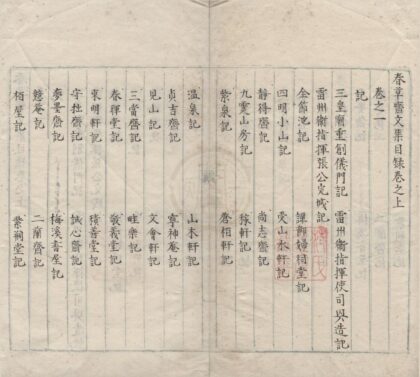 春草齋文集目錄卷之上
卷之一
記
三皇廟重創儀門記 雷州衛指揮使司興造記
雷州衛指揮張公完城記
金節池記 節婦栢堂記
四明小山記 愛山水軒記
靜得齋記 尚志齋記
九靈山房記 稼軒記
紫泉記 蒼栢軒記
溫泉記 山木軒記
貞吉齋記 寧神庵記
見山記 文會軒記
三當齋記 畦樂記
春暉堂記 敬義堂記
東明軒記 積善堂記
守拙齋記 誠心齋記
夢墨齋記 梅溪書屋記
慈庵記 二蘭齋記
栢屋記 祠堂記